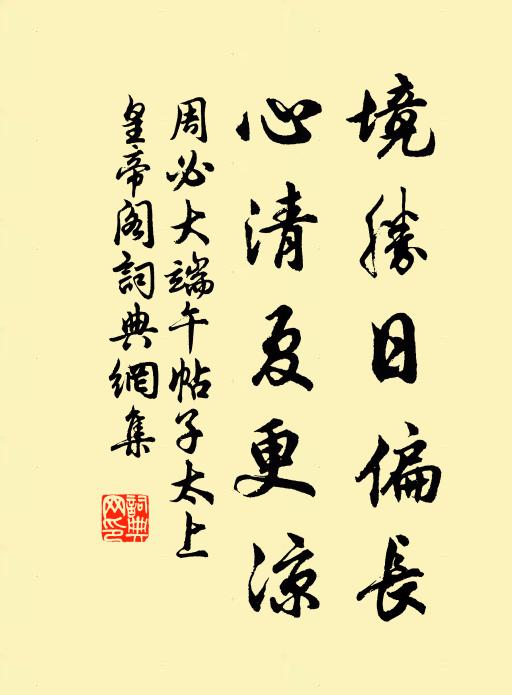 境勝日偏長
心清夏更涼
周必大端午帖子太上
皇帝閣詞典網集
詞典
网印